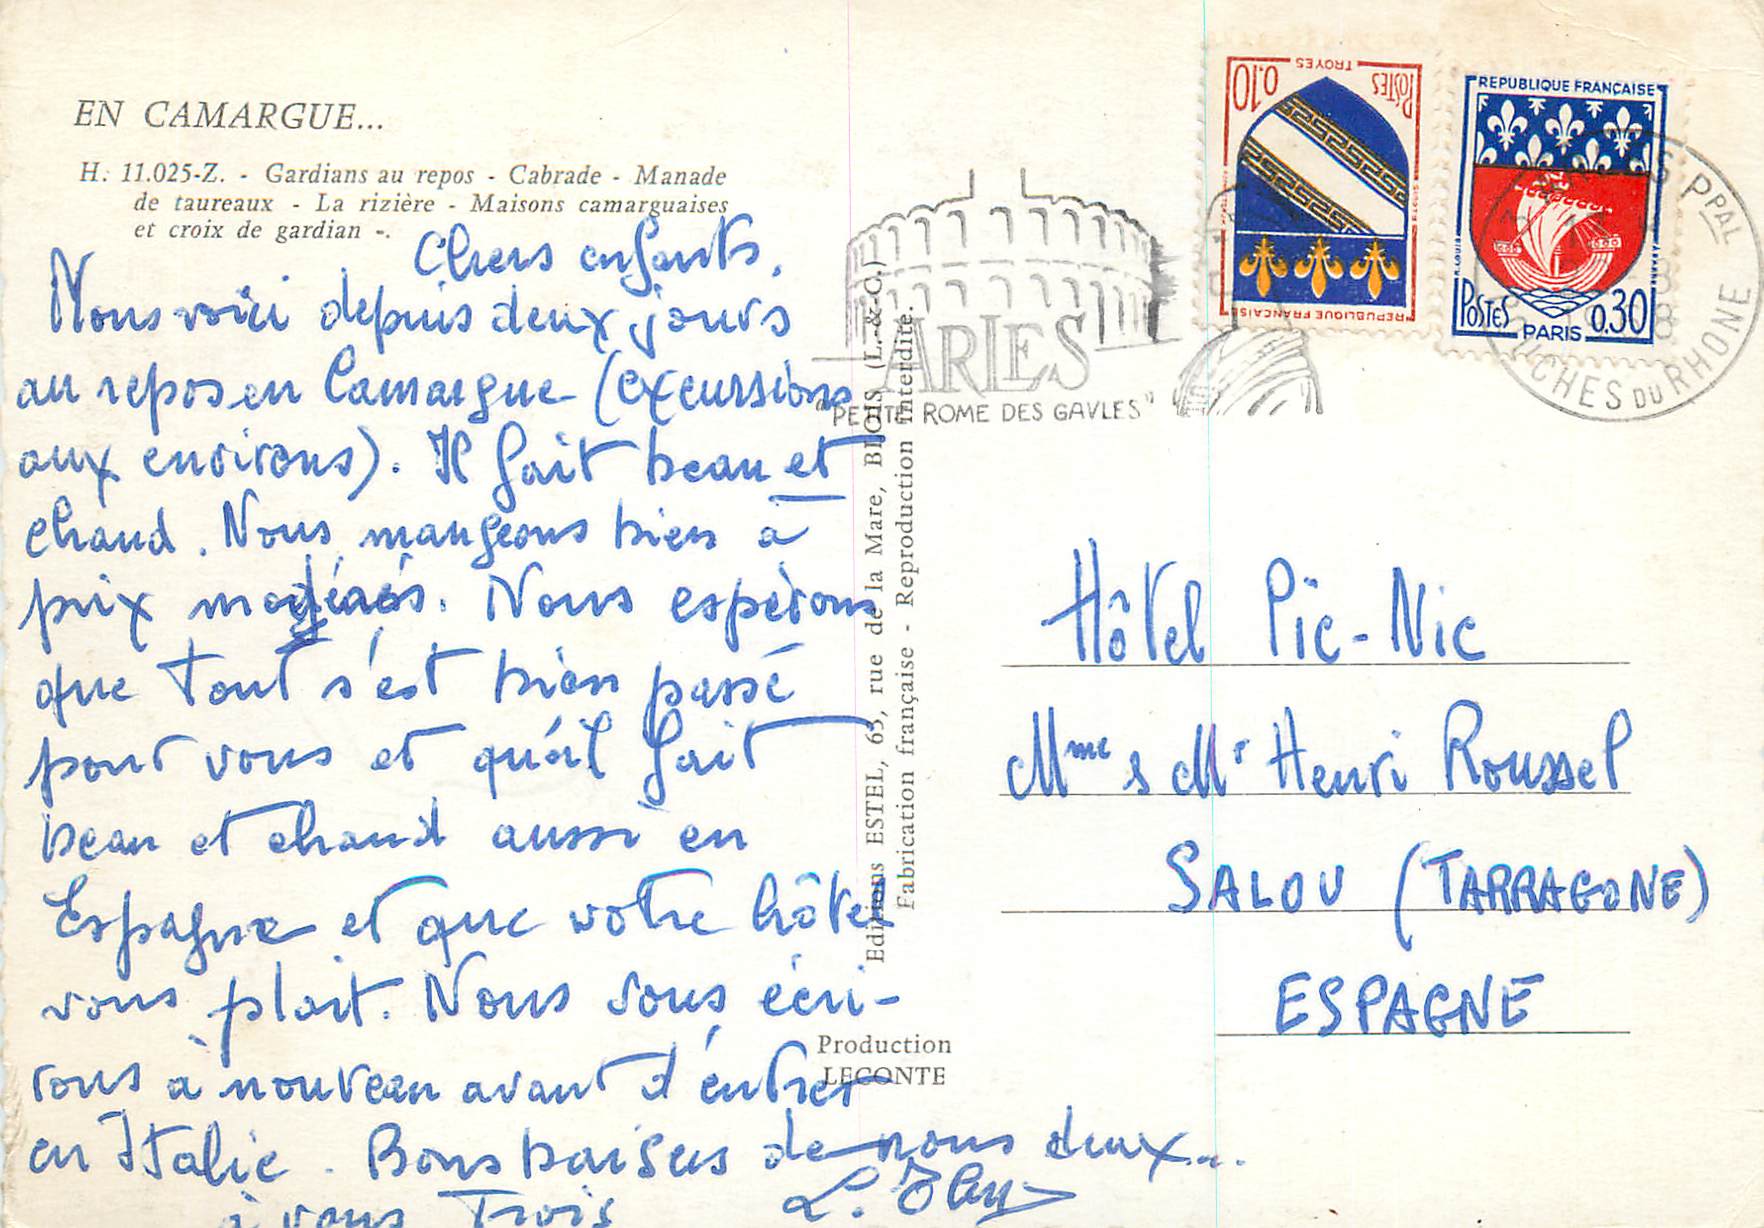 EN CAMARGUE...
H. 11.025-Z. - Gardians au repos - Cabrade - Manade
de taureaux - La rizière - Maisons camarguaises
et croix de gardian -.
Chers enfants,
Nous voici depuis deux jours
au repos en Camargue (excursions
aux environs). Il fait beau et
chaud. Nous mangeons bien à
prix modérés. Nous espérons
que tout s'est bien passé
pour vous et qu'il fait
beau et chaud aussi en
Espagne et que votre hôtel
vous plait. Nous vous écri-
rons à nouveau avant d'entrer
en Italie. Bons baisers de nous deux...
à vous Trois
Editions ESTEL, 63, rue de la Mare, BLOIS (L.-&-C.)
Fabrication française - Reproduction interdite.
Production
LECONTE
ARLES
"PETITE ROME DES GAULES"
TROYES
POSTES
0,10
REPUBLIQUE FRANÇAISE
REPUBLIQUE FRANÇAISE
POSTES
0,30
PARIS
PPAL
BOUCHES DU RHONE
Hôtel Pic-Nic
Mme & Mr Henri Roussel
SALOU (TARRAGONE)
ESPAGNE